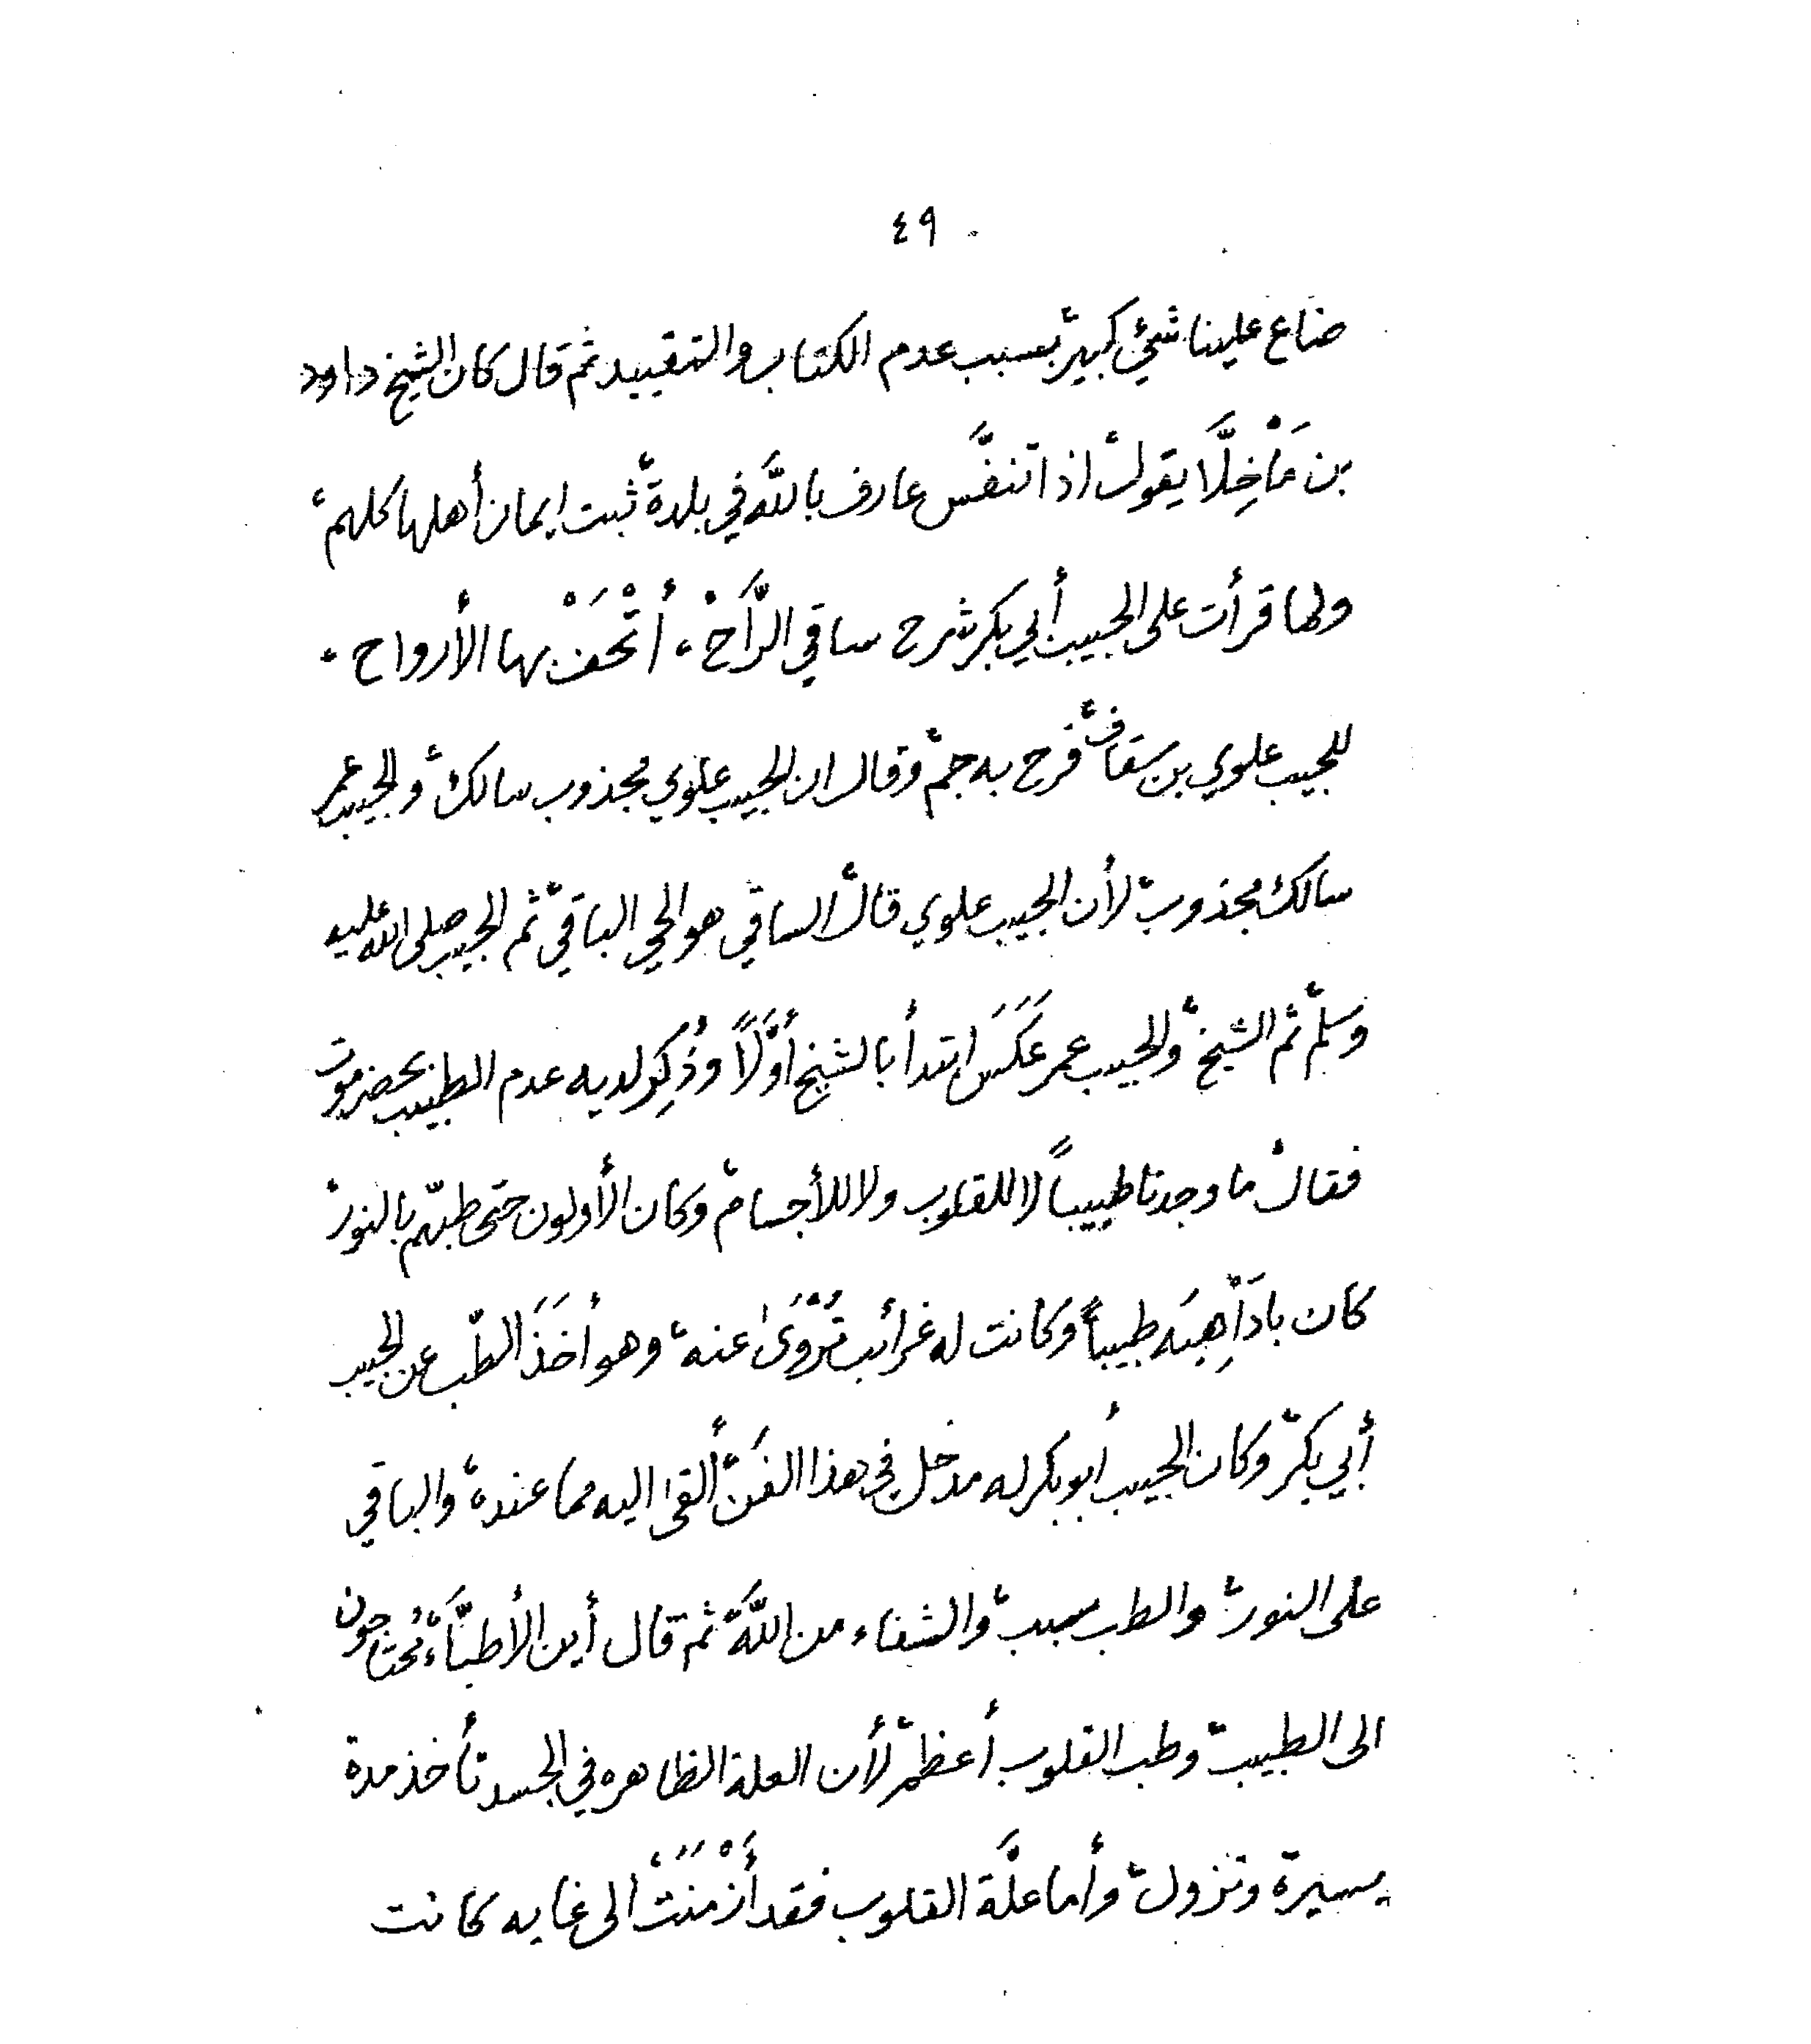 ٤٩
ضاع علينا شيئ كبير، بسبب عدم الكتاب والتقييد ثم قال كان الشيخ داود
بن مَاْخِلَّا يقول، اذا تنفَّس عارف بالله في بلدة، ثبت ايمان أهلها كلهم،
ولما قرأت على الحبيب أبي بكر شرح ساقي الرَّاحْ، أُتْحَفْ بها الأرواح.
للحبيب علوي بن سقاف، فرح به جم، وقال ان الحبيب علوي مجذوب سالك، والحبيب عمر
سالك مجذوب، لأن الحبيب علوي قال، الساقي هو الحي الباقي، ثم الحبيب صلى الله عليه
وسلم، ثم الشيخ، والحبيب عمر عَكَسَ ابتدأ بالشيخ أوَّلاً وذُكِر لديه عدم الطبيب بحضرموت
فقال، ما وجدنا طبيباً لا للقلوب ولا للأجسام، وكان الأولون حتى طبّهم بالنور،
كان باذَاْهِبَه طبيباً، وكانت له غرائب تُرْوَىٰ عنه، وهو أخَذَ الطّب عن الحبيب
أبي بكر، وكان الحبيب أبو بكر له مدخل في هذا الفَنّ، ألقىٰ اليه مما عنده، والباقي
على النور، والطب سبب، والشفاء من الله، ثم قال أين الأطبَّاءْ، نحتاجون
الى الطبيب، وطب القلوب أعظم، لأن العلة الظاهره في الجسد تأخذ مدة
يسيرة وتزول، وأما علَّة القلوب فقد أَزْمَنَتْ الى غايه كانت